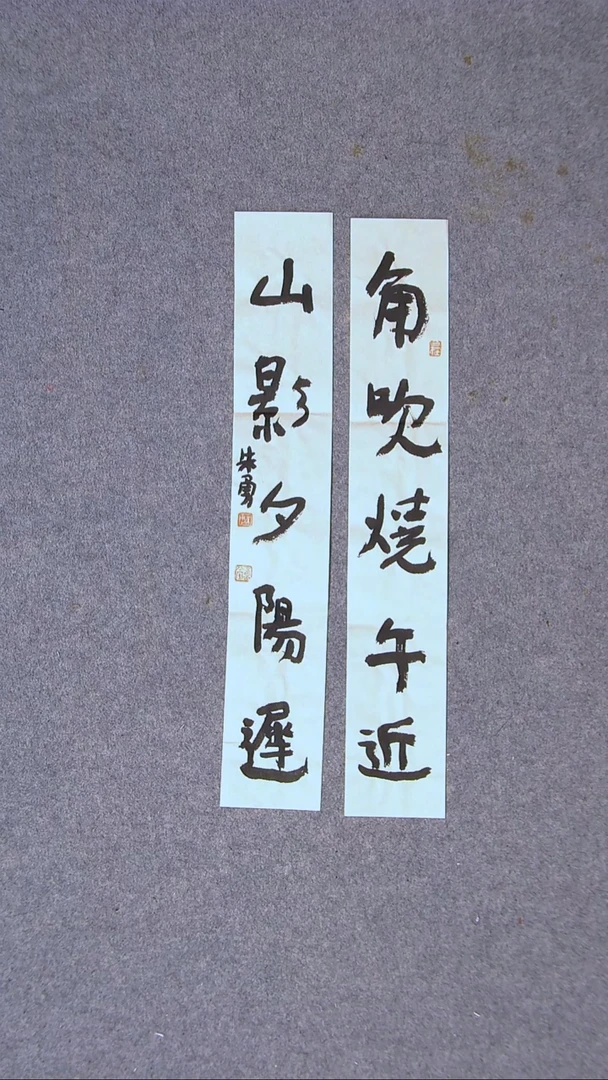 角吹燒午近
山影夕陽遲
朱勇